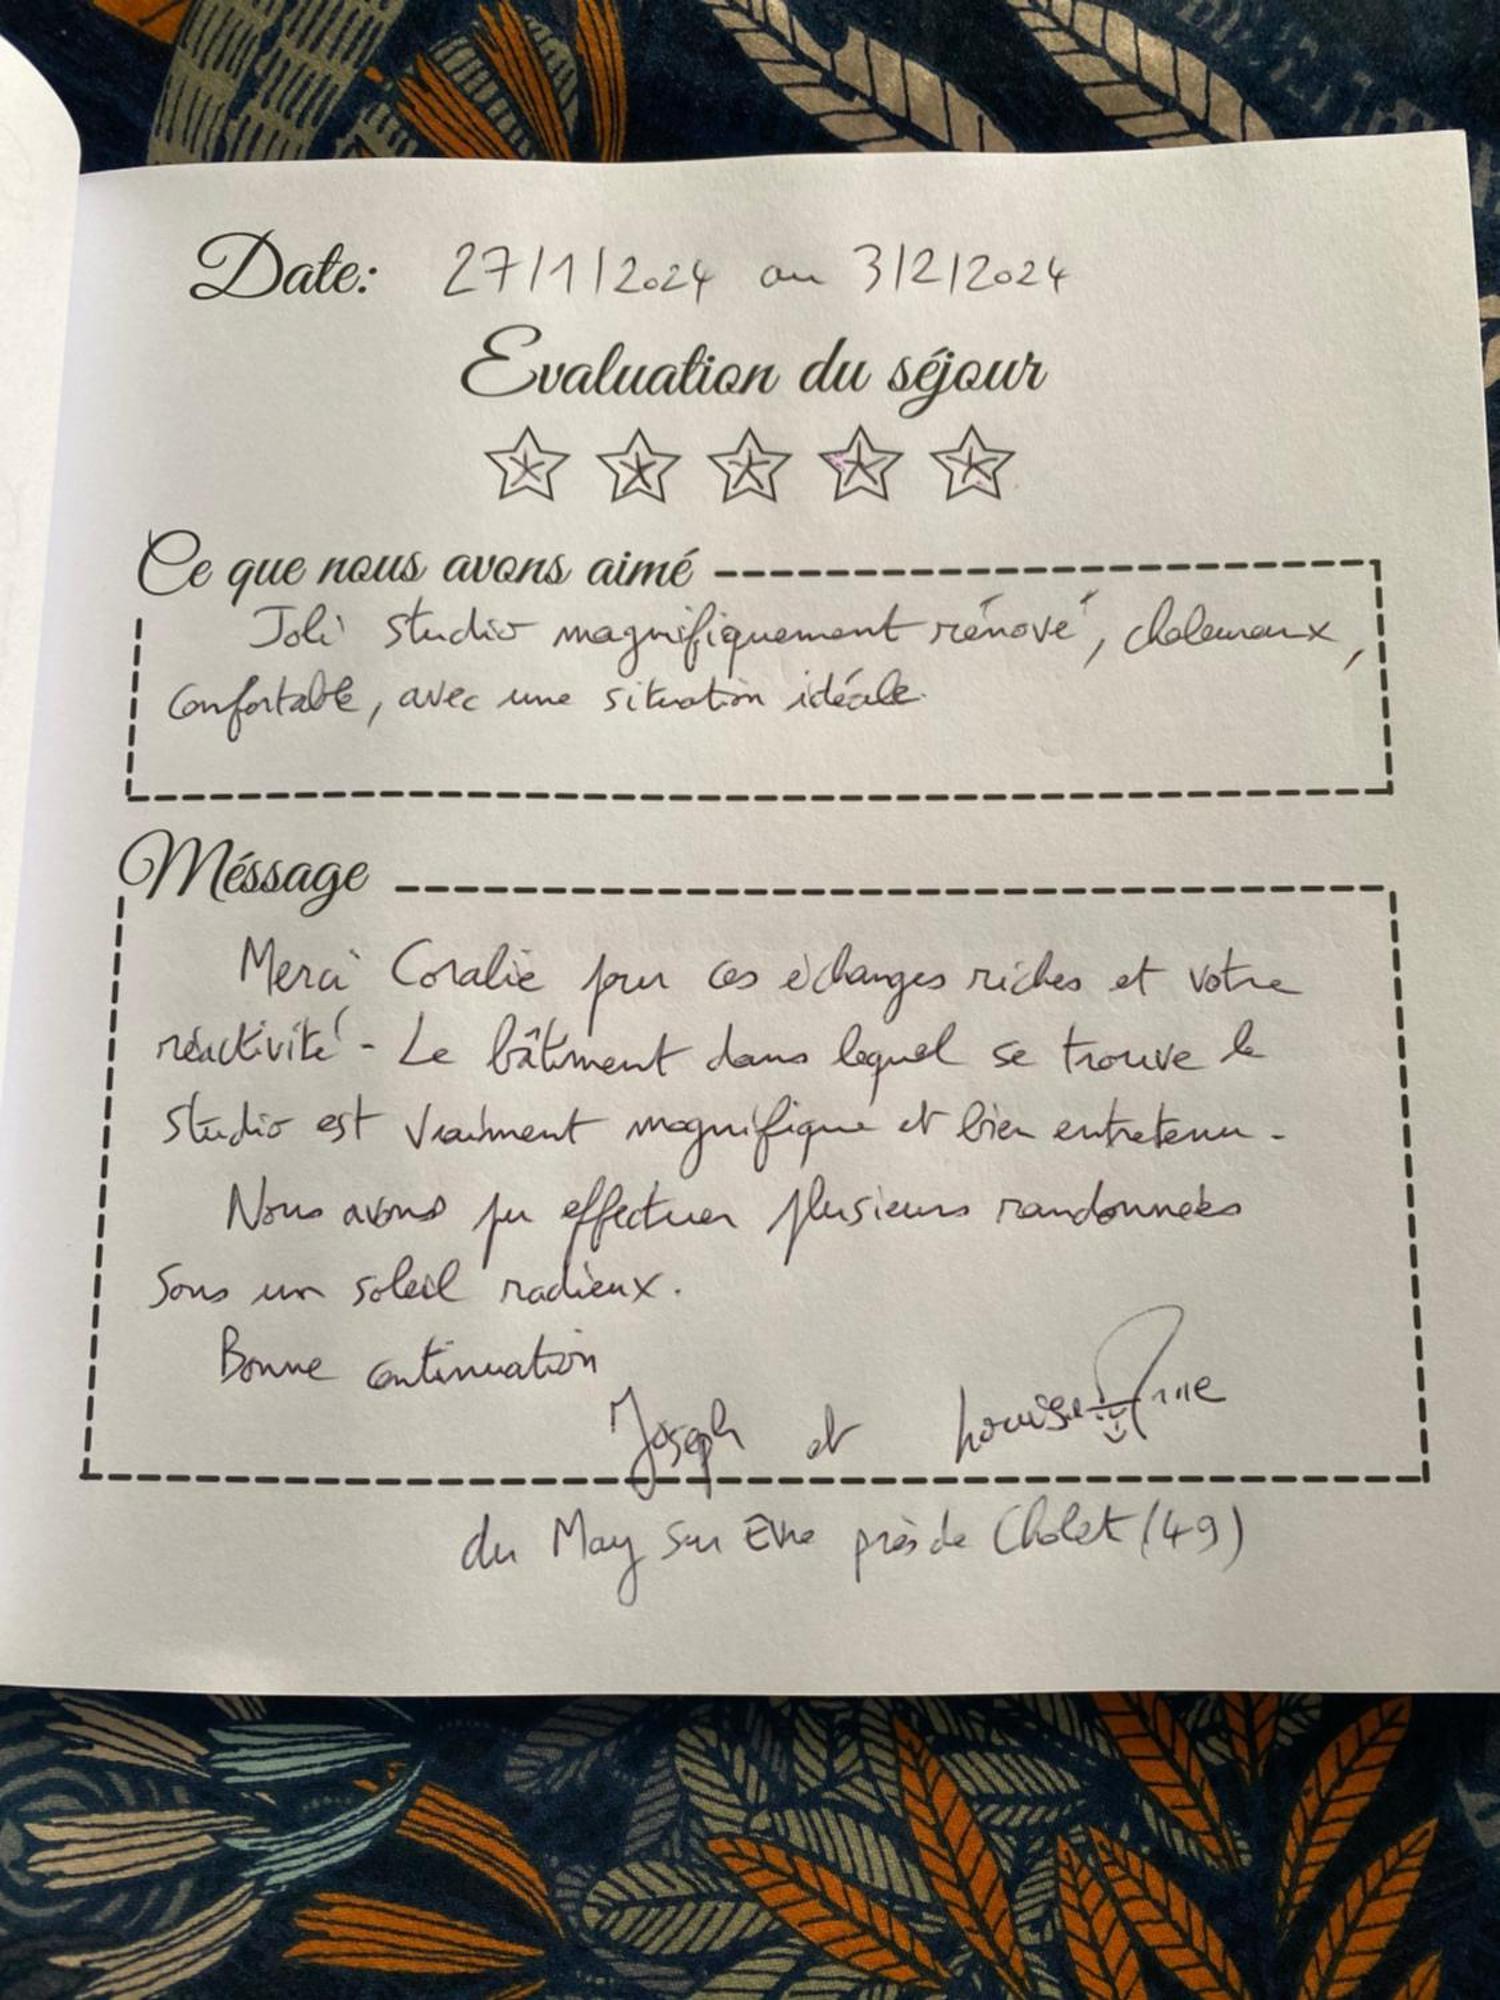 Date: 27/1/2024 au 3/2/2024
Evaluation du séjour
Ce que nous avons aimé
Joli studio magnifiquement rénové, chaleureux,
confortable, avec une situation idéale.
Méssage
Merci Coralie pour ces échanges riches et votre
réactivité - Le bâtiment dans lequel se trouve le
studio est vraiment magnifique et bien entretenu -
Nous avons pu effectuer plusieurs randonnées
sous un soleil radieux.
Bonne continuation
Joseph et Louise-Anne
du May sur Evre près de Cholet (49)